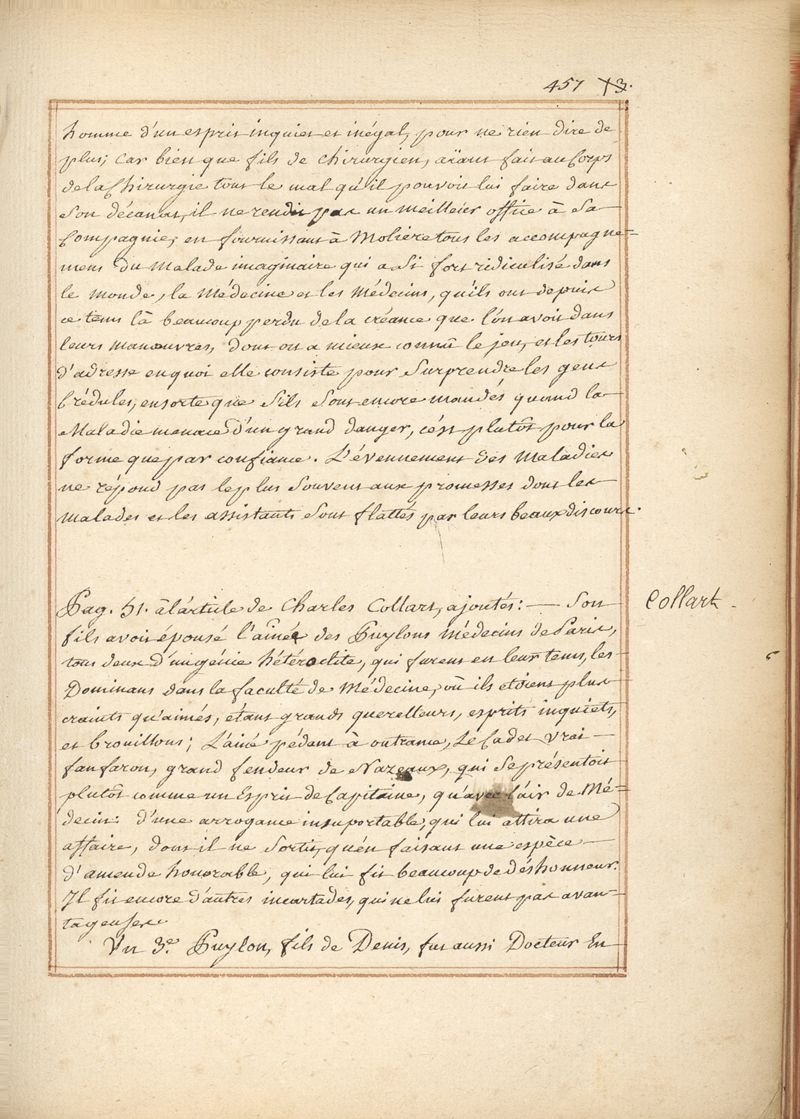 457 73.
homme d'un esprit inquiet et inégal, pour ne rien dire de
plus; car bien que fils de chirurgien, aïant fait au Corps
de la Chirurgie tout le mal qu'il pouvoit lui faire dans
son décanat, il ne rendit pas un meilleier office à Sa
Compagnie, en fournissant à Moliere tous les accompagne=
mens du Malade imaginaire qui a si fort ridiculisé dans
le monde, la Médecine et les Médecins, qu'ils ont depuis
ce tems là beaucoup perdu de la créance que l'on avoit dans
leurs manœuvres, dont on a mieux connû le jeu, et les tours
d'adresse en quoi elle consiste pour surprendre les gens
Crédules, ensorte que s'ils sont encore mandés quand la
Maladie menace d'un grand danger, c'est plutôt pour la
forme que par confiance. L'évennement des Maladies
ne répond pas le plus souvent aux promesses dont les
malades et les assistants sont flattés par leurs beaux discours.
Pag. 51. à l'article de Charles Collart, ajoutés: — Son
Collart.
fils avoit épousé l'aînée des Puylons médecins de Paris,
tous deux d'un génie hétéroclite, qui furent en leur tems, les
Dominans dans la faculté de Médecine, où ils étoient plus
craints qu'aimés, étant grands querelleurs, esprits inquiéts,
et brouillons; L'ainé pédant à outrance, Le Cadet vrai —
fanfaron, grand fendeur de Nazeaux, qui se présentoit
plutôt comme un Esprit de Capitaine, qu'avec l'air de Mé=
decin: d'une arrogance insuportable, qui lui attira une
affaire, dont il ne sortit, qu'en faisant une espèce —
d'amende honorable, qui lui fit beaucoup de déshonneur.
Il fit encore d'autres incartades, qui ne lui furent pas avan=
tageuses.
Un 3e. Puylon, fils de Denis, fut aussi Docteur En